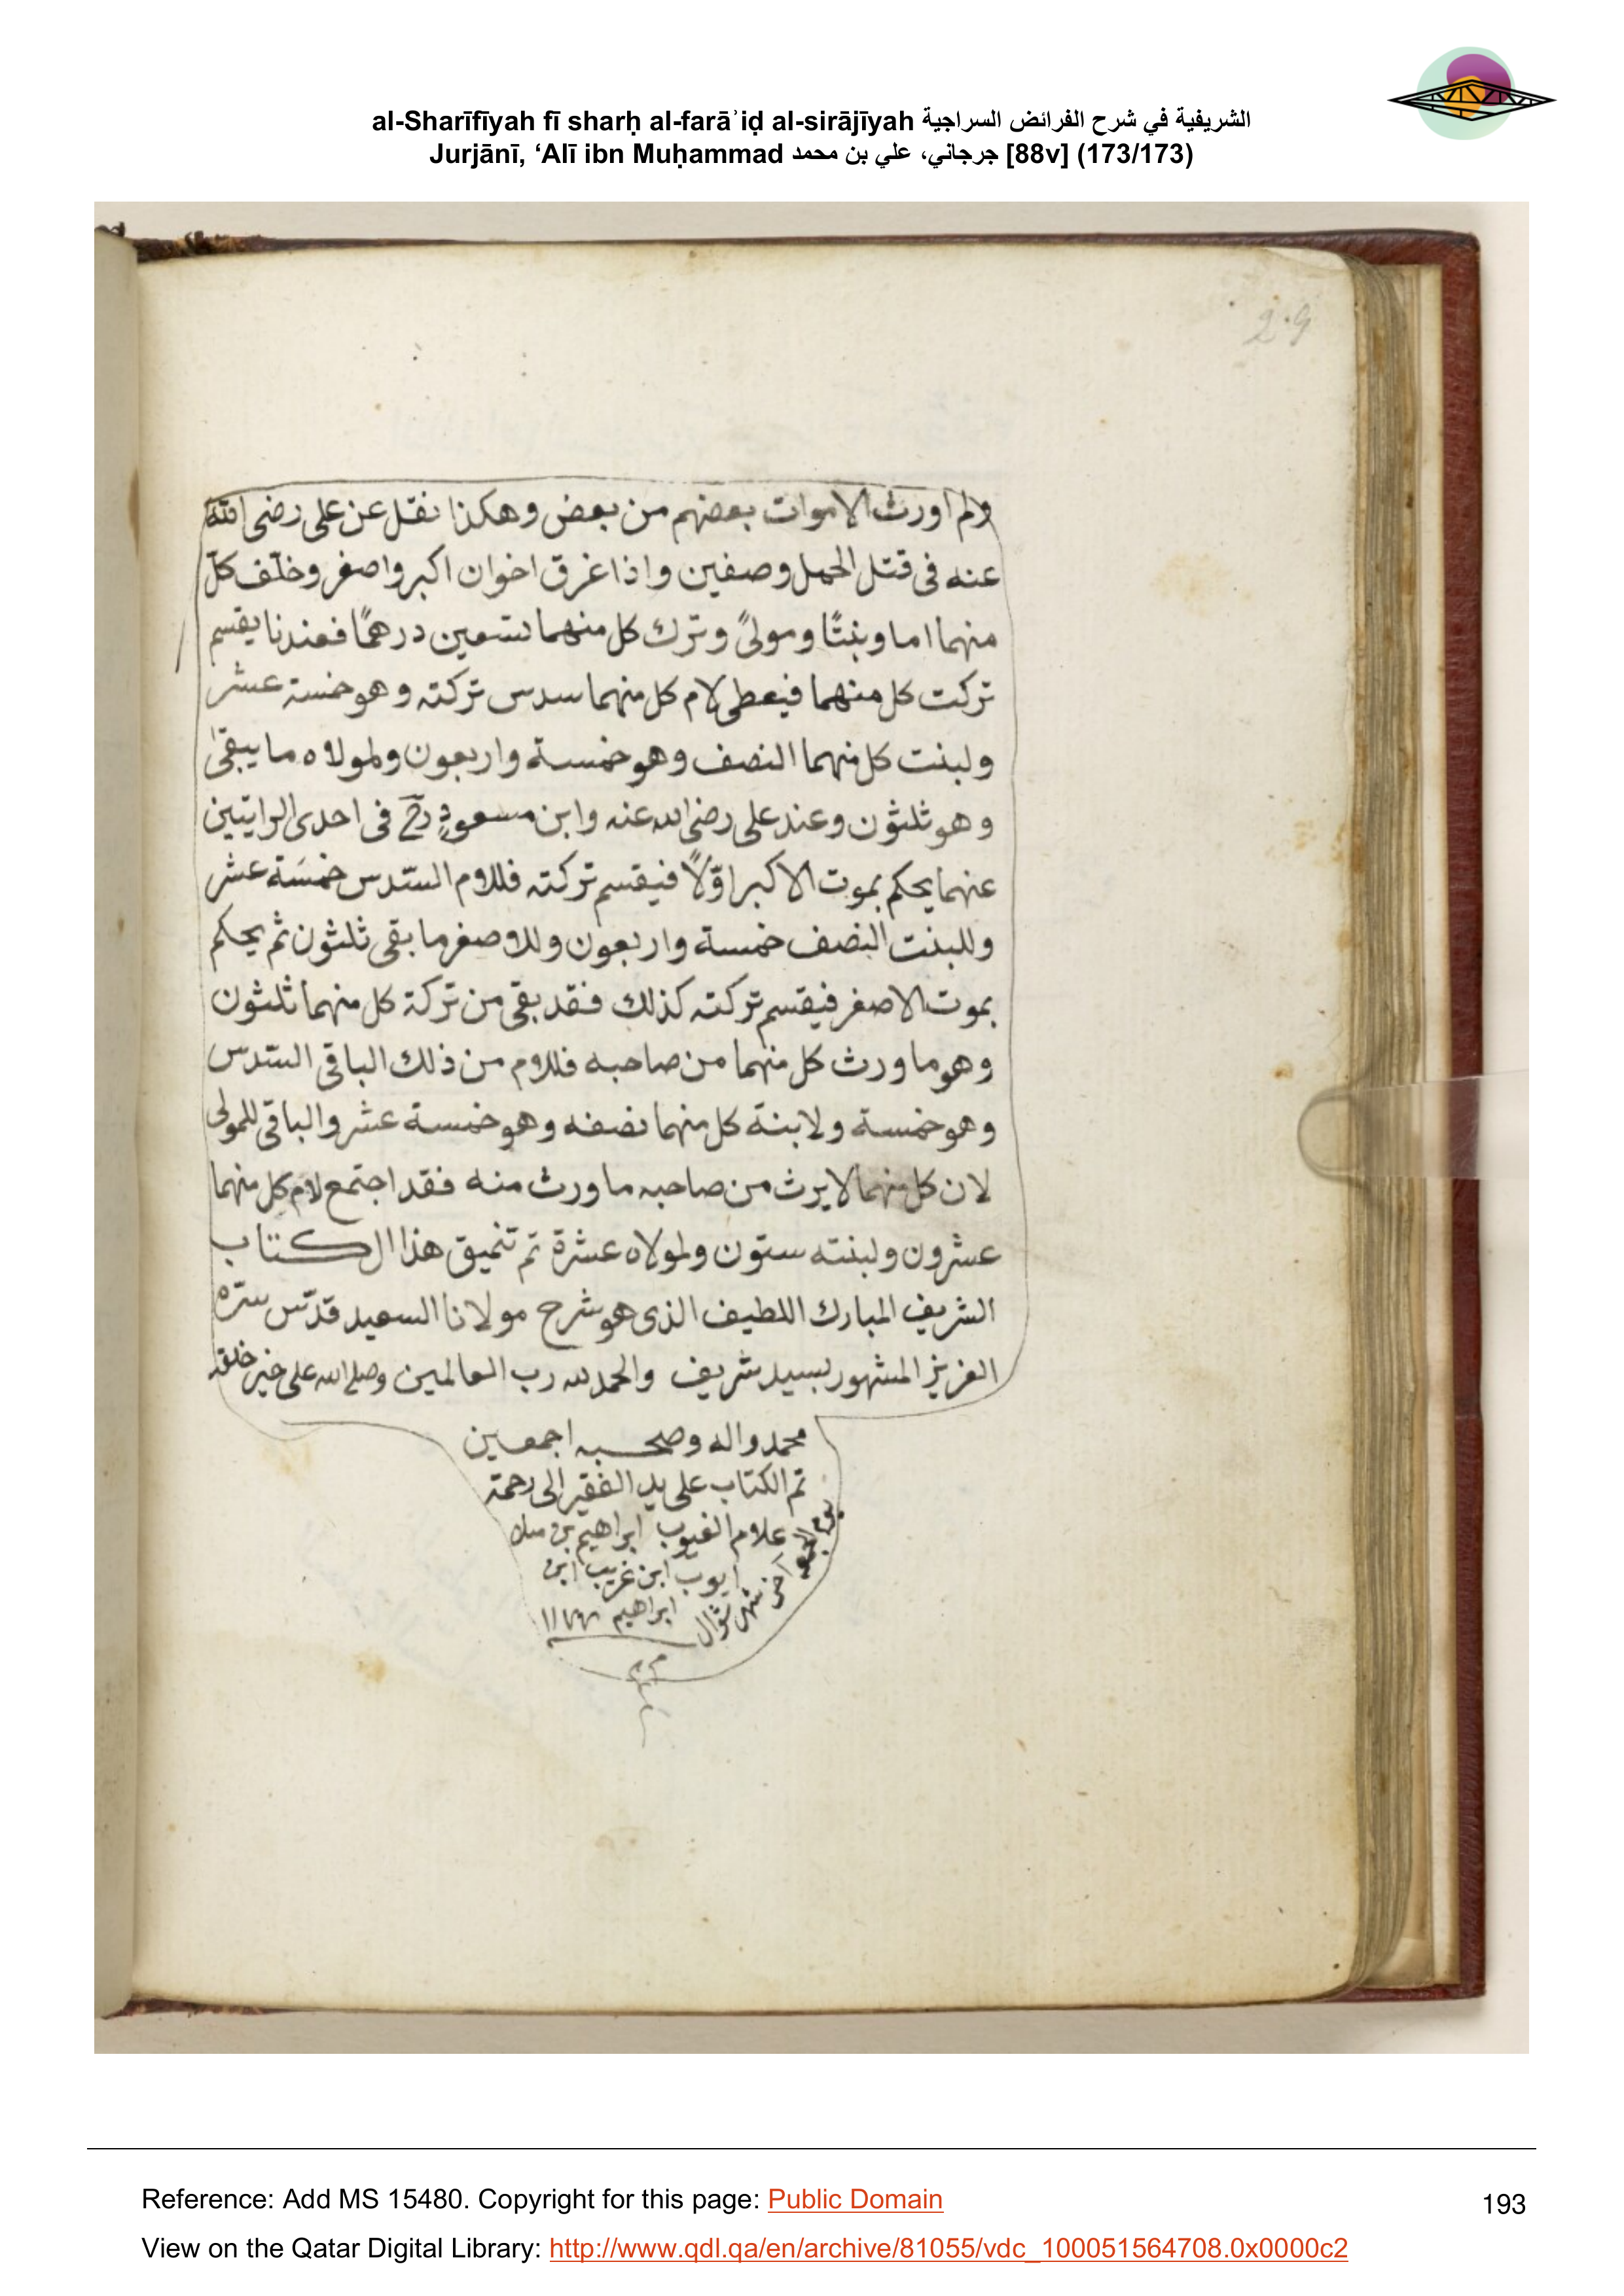 al-Sharīfīyah fī sharḥ al-farāʾiḍ al-sirājīyah الشريفية في شرح الفرائض السراجية
Jurjānī, ‘Alī ibn Muḥammad جرجاني، علي بن محمد [88v] (173/173)
ولم اورث الاموات بعضهم من بعض وهكذا نقل عن على رضى الله
عنه فى قتل الجمل وصفين واذا غرق اخوان اكبر واصغر وخلّف كلّ
منهما اما وبنتًا ومولىً وترك كل منهما تسعين درهمًا فعندنا يقسم
تركت كل منهما فيعطى لام كل منهما سدس تركته وهو خمسة عشر
ولبنت كل منهما النصف وهو خمسة واربعون ولمولاه ما يبقى
وهو ثلثون وعند على رضى الله عنه وابن مسعودٍ رح فى احدى الرايتين
عنهما يحكم بموت الاكبر اوّلاً فيقسم تركته فللام السّدس خمسَة عشر
وللبنت النصف خمسة واربعون وللاصغر ما بقى ثلثون ثم يحكم
بموت الاصغر فيقسم تركته كذلك فقد بقى من تركة كل منهما ثلثون
وهو ما ورث كل منهما من صاحبه فللام من ذلك الباقى السّدس
وهو خمسة ولابنة كل منهما نصفه وهو خمسة عشر والباقى للمولى
لان كل منهما لا يرث من صاحبه ما ورث منه فقد اجتمع لام كل منهما
عشرون ولبنته ستون ولمولاه عشرة تم تنميق هذا الكتاب
الشريف المبارك اللطيف الذى هو شرح مولانا السعيد قدّس سرّه
العزيز المشهور بسيد شريف والحمد لله رب العالمين وصلى الله على خير خلقه
محمد واله وصحبه اجمعين
تم الكتاب على يد الفقير الى رحمة
علام الغيوب ابراهيم بن
ايوب ابن غريب ابن
ابراهيم
يوم الجمعه آخر شهر شوال
Reference: Add MS 15480. Copyright for this page: Public Domain
193
View on the Qatar Digital Library: http://www.qdl.qa/en/archive/81055/vdc_100051564708.0x0000c2